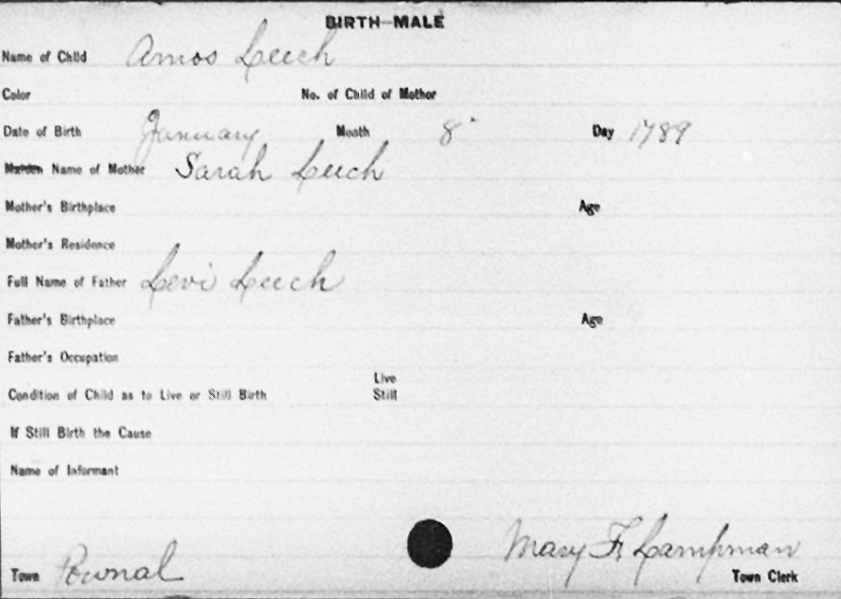 BIRTH—MALE
Name of Child Amos Leech
Color No. of Child of Mother
Date of Birth January Month 8" Day 1789
Maiden Name of Mother Sarah Leech
Mother's Birthplace Age
Mother's Residence
Full Name of Father Levi Leech
Father's Birthplace Age
Father's Occupation
Live
Condition of Child as to Live or Still Birth Still
If Still Birth the Cause
Name of Informant
Mary F. Lampman
Town Pownal Town Clerk